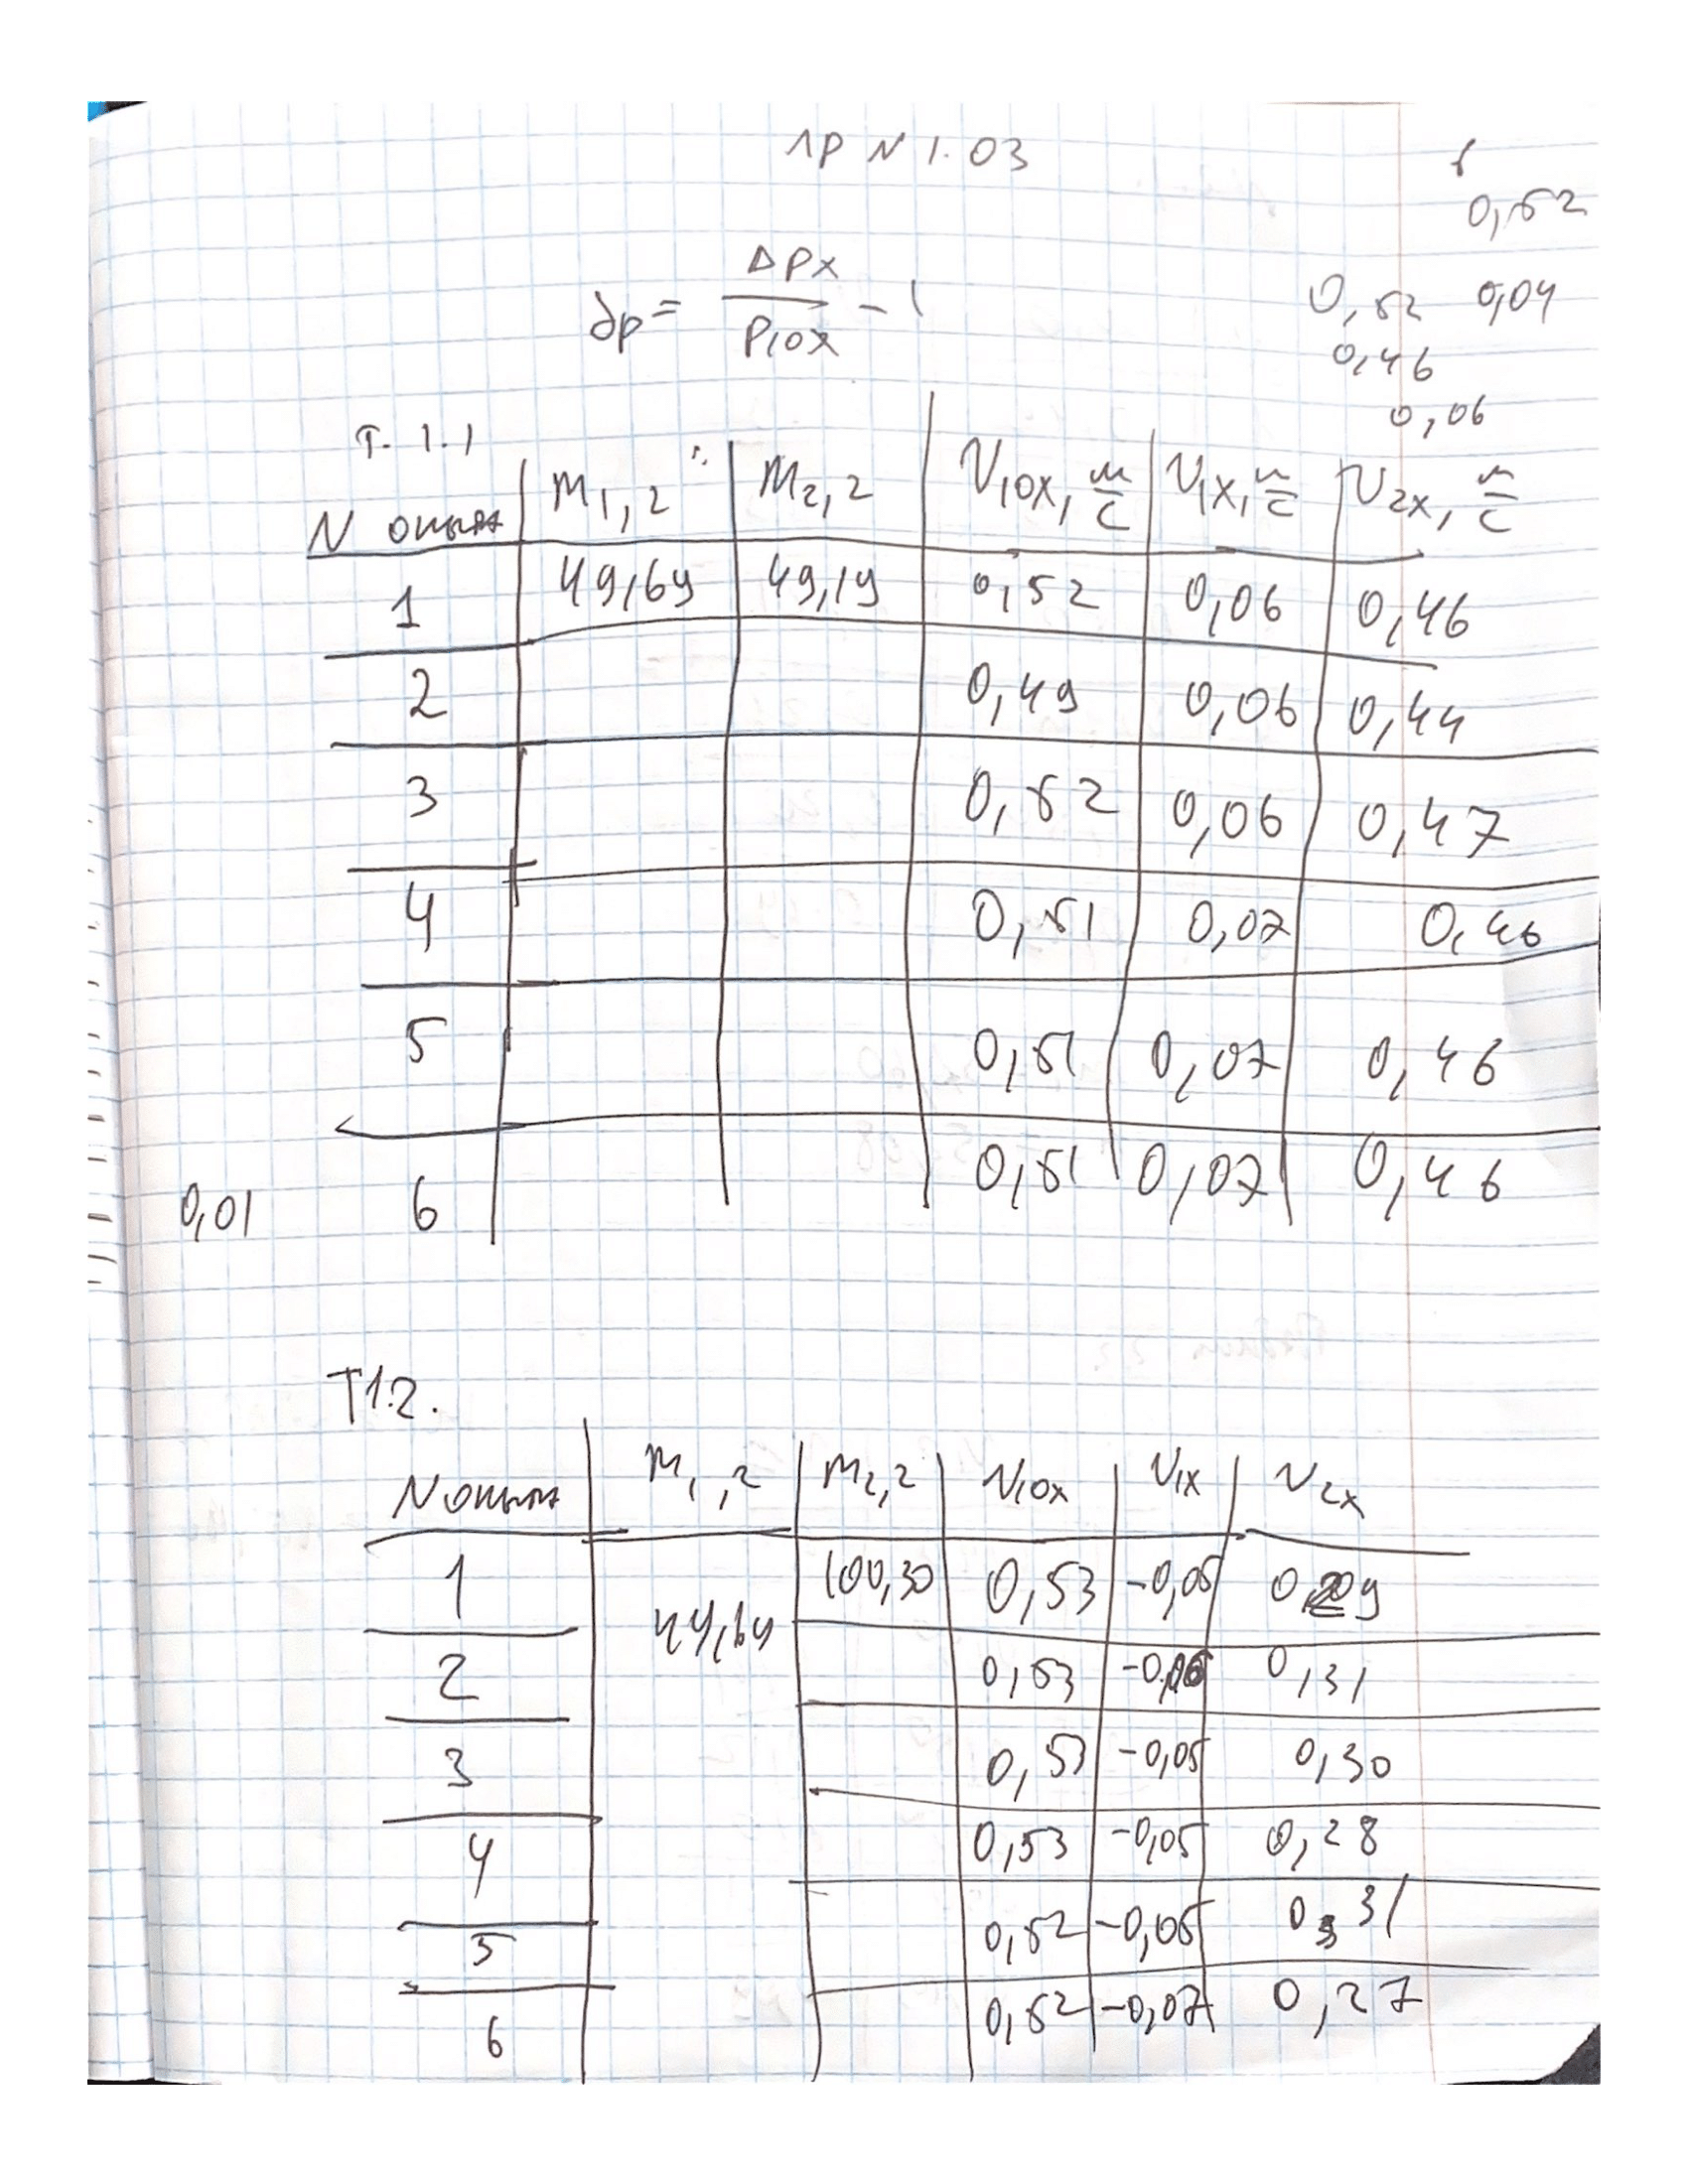 ЛР N 1.03
0,52
δp = Δpx / p10x - 1
0,52 0,04
0,46
0,06
Т. 1.1
N опыта m1, г m2, г V10x, м/с V1x, м/с V2x, м/с
1 49,69 49,19 0,52 0,06 0,46
2 0,49 0,06 0,44
3 0,52 0,06 0,47
4 0,51 0,07 0,46
5 0,51 0,07 0,46
0,01 6 0,51 0,07 0,46
Т1.2.
N опыта m1, г m2, г V10x V1x V2x
1 100,30 0,53 -0,05 0,29
2 0,53 0,31
3 0,53 -0,05 0,30
4 0,53 -0,05 0,28
5 0,52 -0,05 0,31
6 0,52 -0,07 0,27